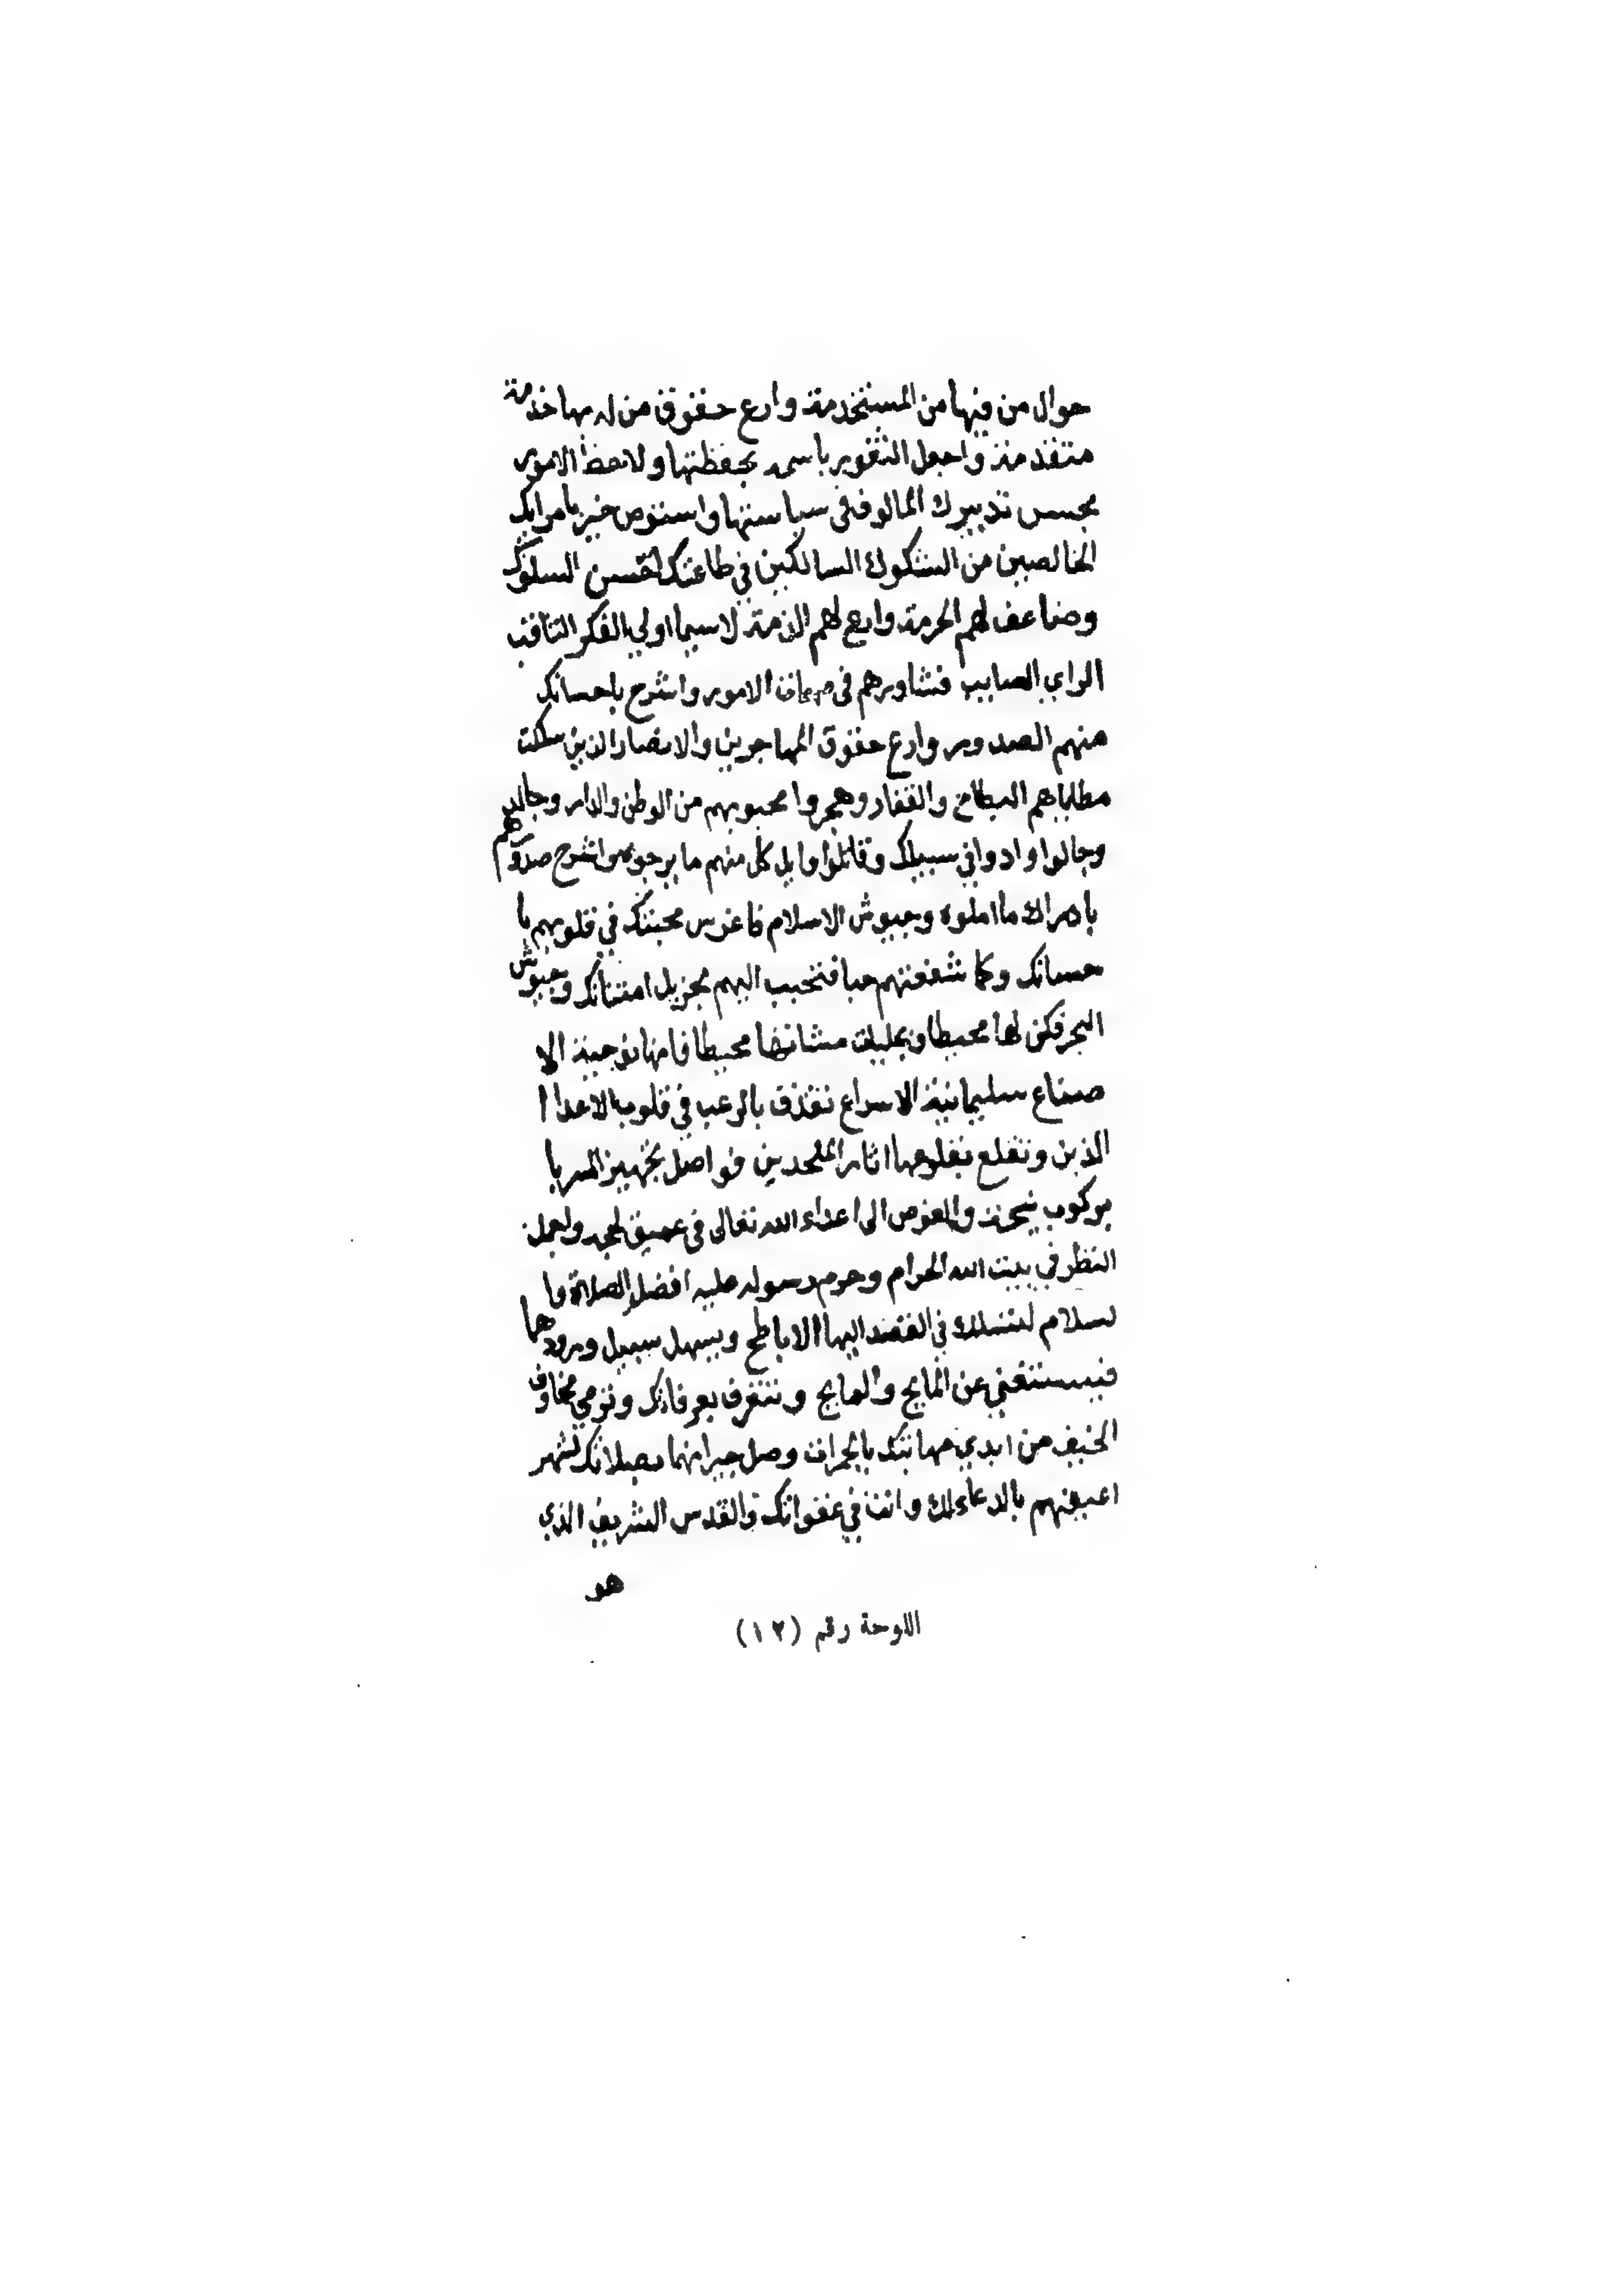 حوال من فيها من المستخدمة وارع حقوق من له بها خدمة
متقدمة واجعل الثغور باسمه بحفظتها ولاحظ الامور
بحسن تدبيرك المالوف في سياستها واستوص خيرا بامرايك
الخالصين من الشكوك السالكين في طاعتك احسن السلوك
وضاعف لهم الحرمة وارع لهم الذمة لا سيما اولي الفكر الثاقب
الراي الصايب فشاورهم في مهمات الامور واشرح باحسانك
منهم الصدور وارع حقوق المهاجرين والانصار الذين سلكت
مطاياهم البطاح والقفار وهجروا محبوبهم من الوطن والدار وجالد
وجالوا واد وا في سبيلك وقاتلوا وا يل كل منهم ما يرجوه واشرح صدورهم
بادراك ما املوه وجيوش الاسلام فاغرس محبتك في قلوبهم با
حسانك وكما شغفتهم حبا فتحبب اليهم بجزيل امتنانك وجيوش
البحر فكن لها محيطا وبجليات مشانها محيطا فانها نوحية الا
صناع سليمانية الاسراع تقذف بالرعب في قلوب الاعدا ا
الذين وتقلع بقلوعها اثار الملحدين فواصل بتجهيز السرايا
بركوب ثبجه والغوص الى اعداء الله تعالى في عميق لججه واجمل
النظر في بيت الله الحرام وحرم رسوله عليه افضل الصلاة وا
لسلام لتسلك في القصد اليها الاباطح ويسهل سبيل ورودهما
فيستغني عن المايح والمايح وتتعرف بعرفانك وترمي مخاوف
الخيف من ايدي مهابتك بالجمرات وصل جيرانهما بصلاتك لتشهر
اعينهم بالدعاء لك وانت في غفواتك والقدس الشريف الذي
هو
اللوحة رقم (١٢)